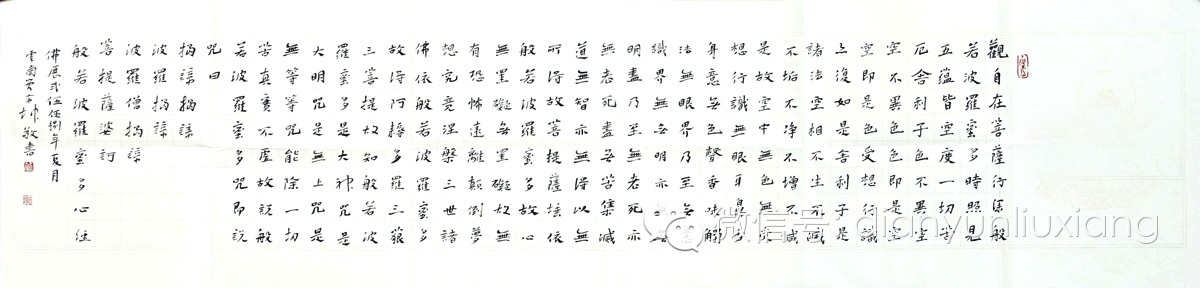 觀自在菩薩行深般
若波羅蜜多時照見
五蘊皆空度一切苦
厄舍利子色不異空
空不異色色即是空
空即是色受想行識
亦復如是舍利子是
諸法空相不生不滅
不垢不净不增不減
是故空中無色無受
想行識無眼耳鼻舌
身意無色聲香味觸
法無眼界乃至無意
識界無無明亦無無
明盡乃至無老死亦
無老死盡無苦集滅
道無智亦無得以無
所得故菩提薩埵依
般若波羅蜜多故心
無罣礙無罣礙故無
有恐怖遠離顛倒夢
想究竟涅槃三世諸
佛依般若波羅蜜多
故得阿耨多羅三藐
三菩提故知般若波
羅蜜多是大神咒是
大明咒是無上咒是
無等等咒能除一切
苦真實不虛故說般
若波羅蜜多咒即說
咒曰
揭諦揭諦
波羅揭諦
波羅僧揭諦
菩提薩婆訶
般若波羅蜜多心經
佛歷弍伍伍捌年夏月
雲南 敬書
微信号: dianyunliuxiang